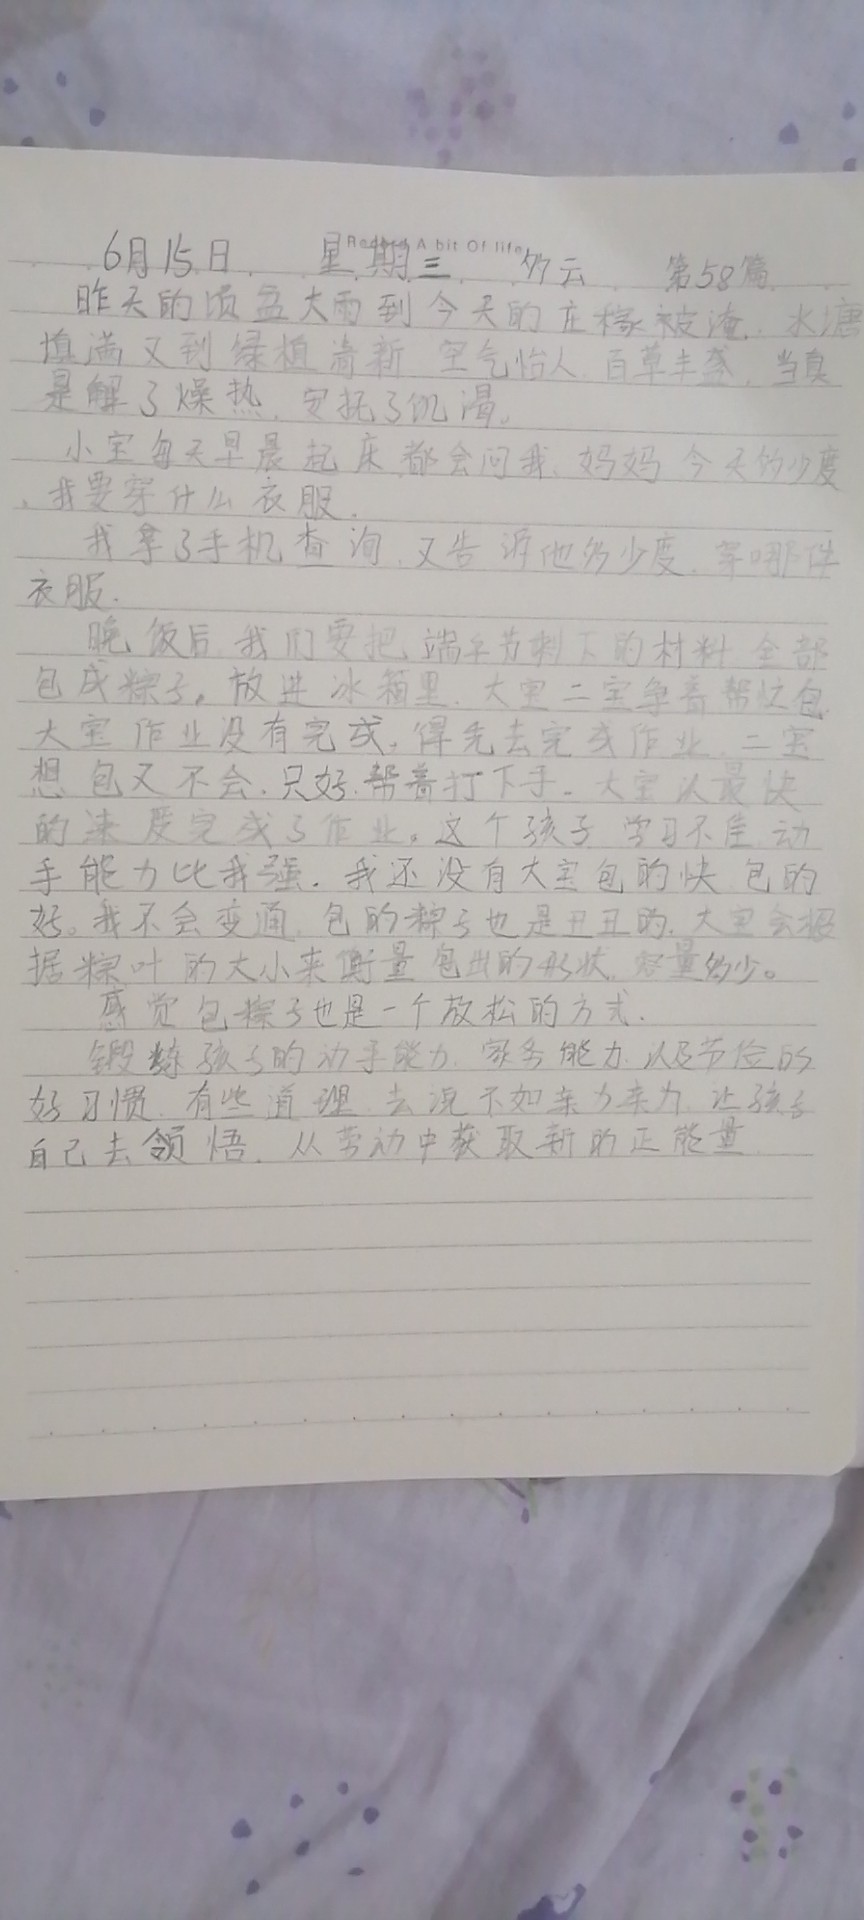 Record A bit Of life
6月15日 星期三 多云 第58篇
昨天的倾盆大雨到今天的庄稼被淹，水塘
填满又到绿植清新 空气怡人 百草丰盛，当真
是解了燥热，安抚了饥渴。
小宝每天早晨起床都会问我、妈妈今天的少度
，我要穿什么衣服．
我拿了手机查询，又告诉他多少度，穿哪件
衣服．
晚饭后 我们要把端午节剩下的材料全部
包成粽子。放进冰箱里．大宝二宝争着帮忙包
大宝作业没有完成，得先去完成作业，二宝
想包又不会．只好帮着打下手。大宝以最快
的速度完成了作业。这个孩子学习不佳，动
手能力比我强．我还没有大宝包的快 包的
好。我不会变通，包的粽子也是丑丑的，大宝会根
据粽叶的大小来衡量包出的形状，容量多少。
感觉包粽子也是一个放松的方式．
锻炼孩子的动手能力，家务能力，以及节俭的
好习惯．有些道理，去说不如亲力亲为，让孩子
自己去领悟．从劳动中获取新的正能量．